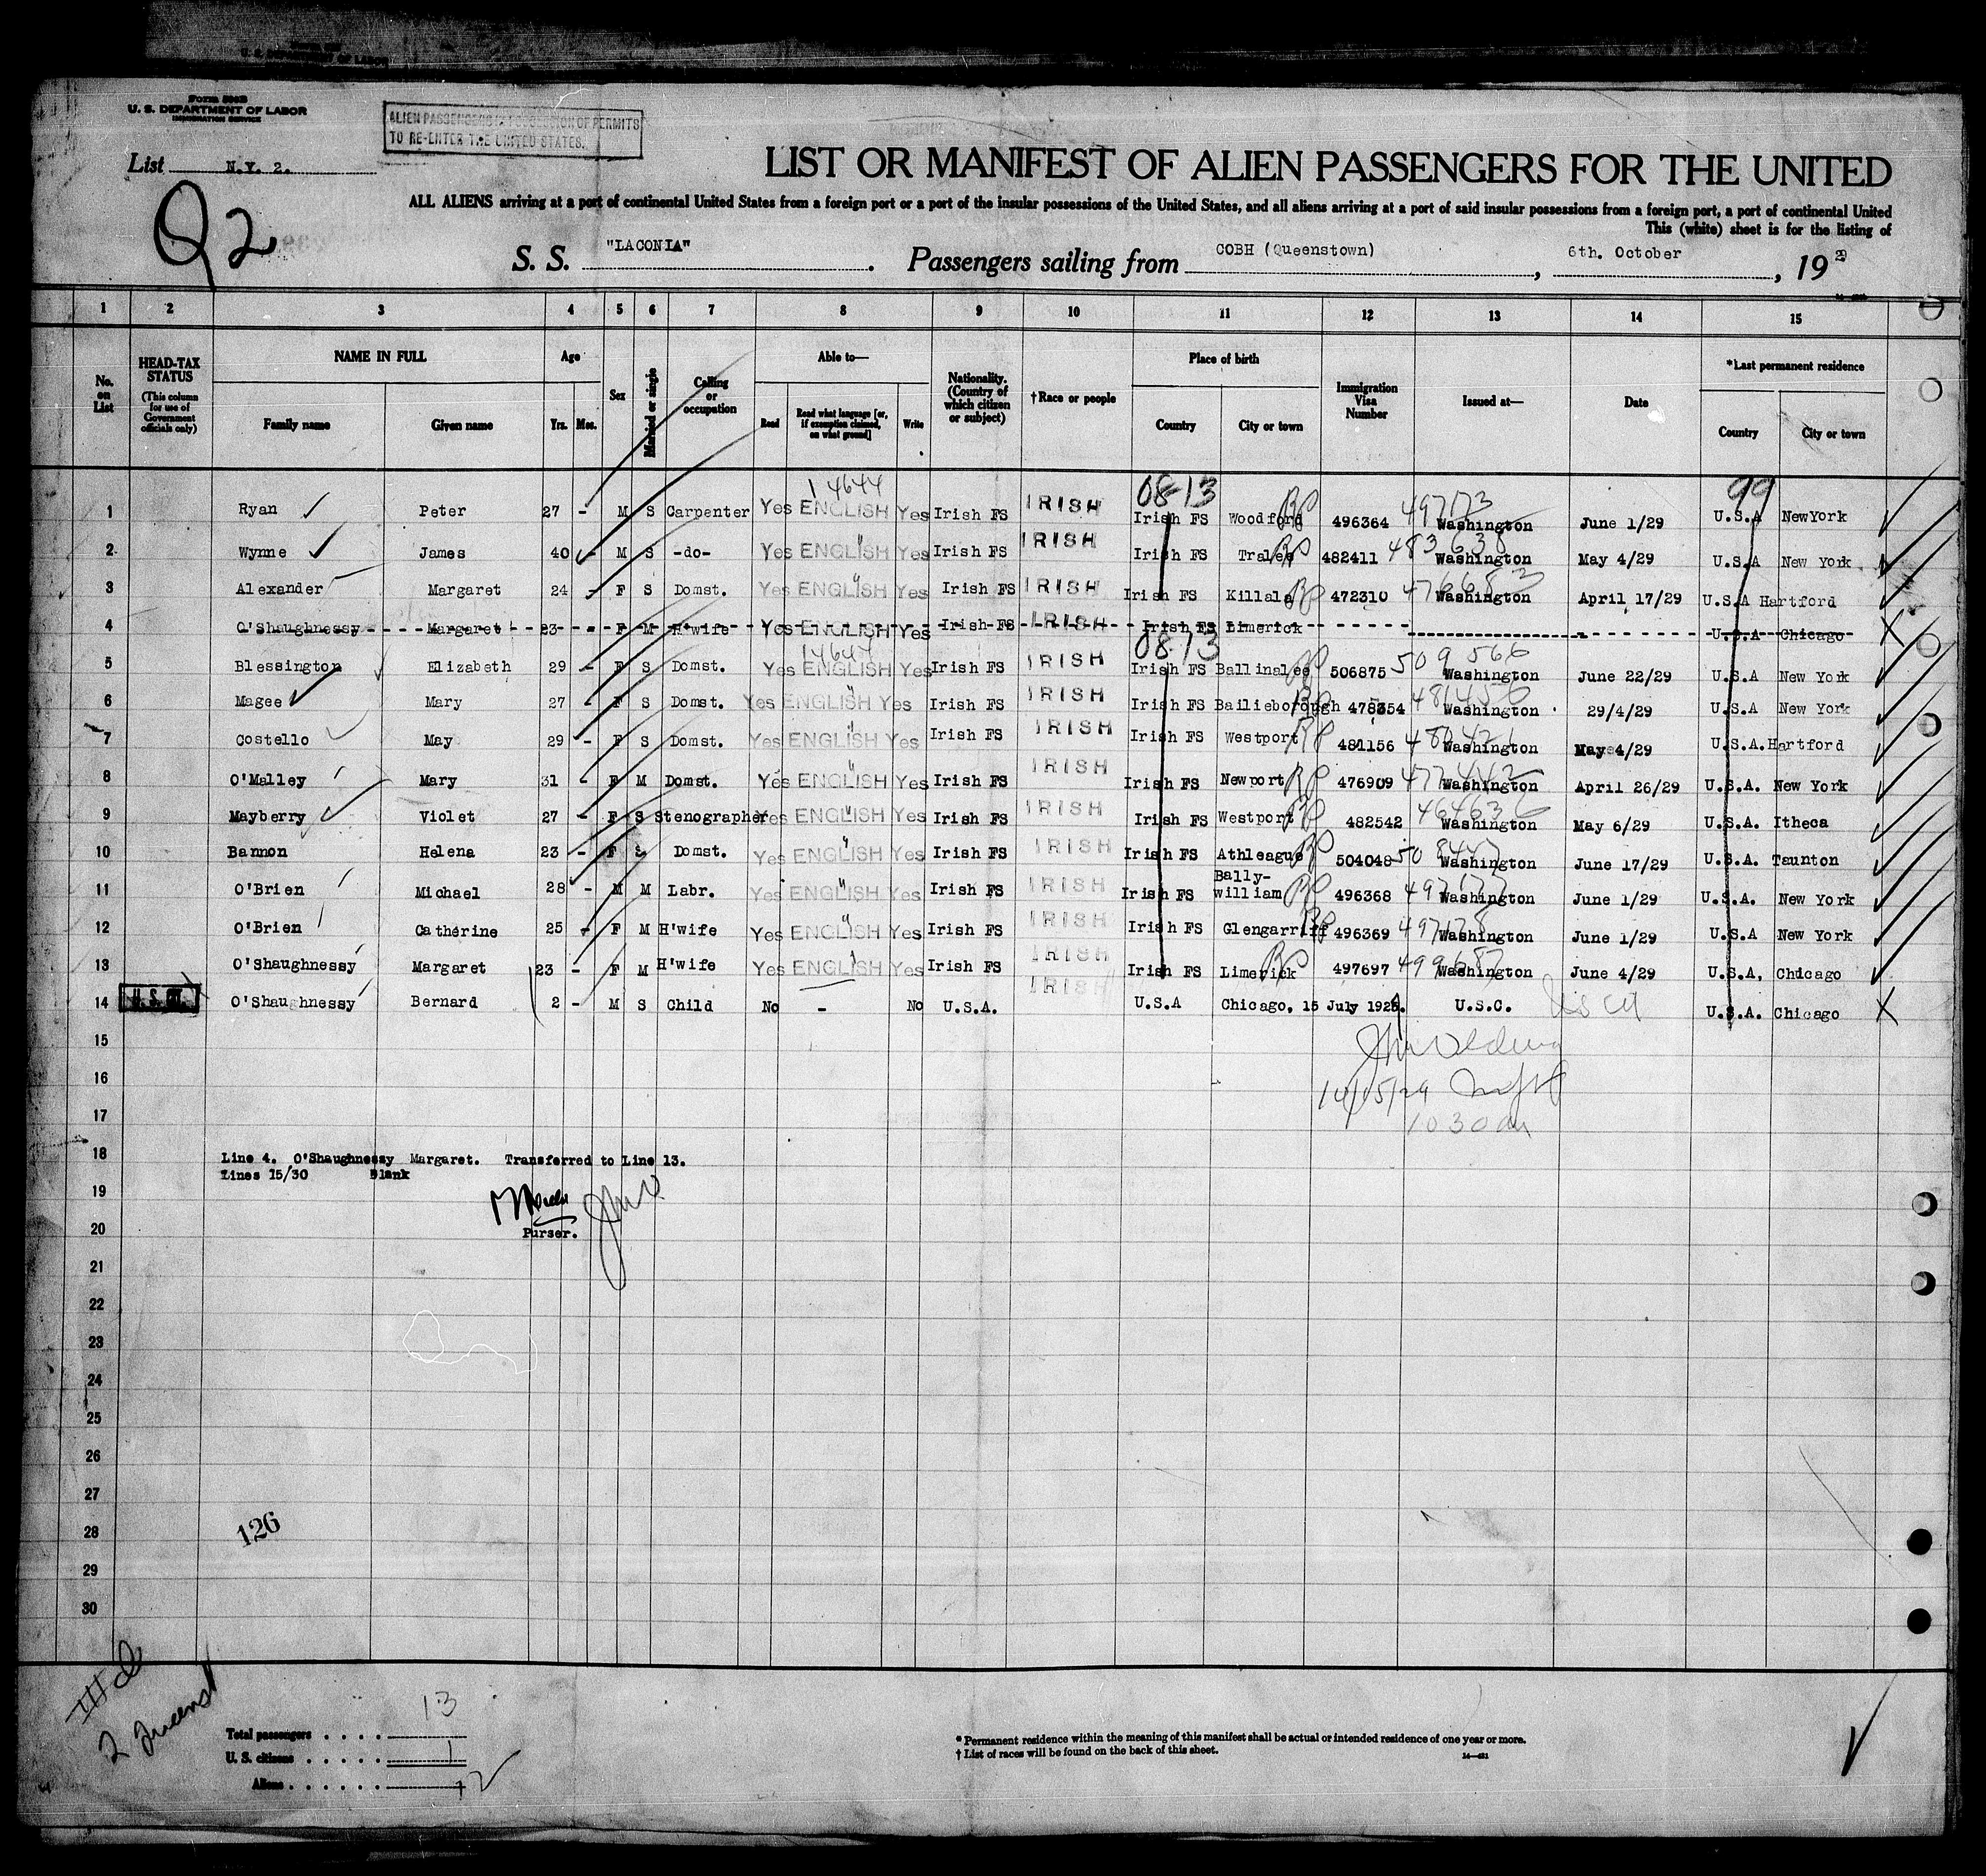 Form 500B
U. S. DEPARTMENT OF LABOR
IMMIGRATION SERVICE
ALIEN PASSENGERS IN POSSESSION OF PERMITS
TO RE-ENTER THE UNITED STATES.
List N.Y. 2.
Q2
LIST OR MANIFEST OF ALIEN PASSENGERS FOR THE UNITED
ALL ALIENS arriving at a port of continental United States from a foreign port or a port of the insular possessions of the United States, and all aliens arriving at a port of said insular possessions from a foreign port, a port of continental United
This (white) sheet is for the listing of
S. S. "LACONIA". Passengers sailing from COBH (Queenstown), 6th. October, 1929
1 2 3 4 5 6 7 8 9 10 11 12 13 14 15
No. on List
HEAD-TAX STATUS (This column for use of Government officials only)
NAME IN FULL Family name Given name
Age Yrs. Mos.
Sex
Married or single
Calling or occupation
Able to— Read Read what language [or, if exemption claimed, on what ground] Write
Nationality. (Country of which citizen or subject)
†Race or people
Place of birth Country City or town
Immigration Visa Number
Issued at—
Date
*Last permanent residence Country City or town
14644 08-13 99
1 Ryan Peter 27 - M S Carpenter Yes ENGLISH Yes Irish FS IRISH Irish FS Woodford 496364 497173 Washington June 1/29 U.S.A NewYork
2 Wynne James 40 - M S -do- Yes ENGLISH Yes Irish FS IRISH Irish FS Tralee 482411 483638 Washington May 4/29 U.S.A New York
3 Alexander Margaret 24 - F S Domst. Yes ENGLISH Yes Irish FS IRISH Irish FS Killala 472310 Washington April 17/29 U.S.A Hartford
4 O'Shaughnessy Margaret 23 - F M H'wife Yes ENGLISH Yes Irish FS IRISH Irish FS Limerick U.S.A Chicago
14644 08-13
5 Blessington Elizabeth 29 - F S Domst. Yes ENGLISH Yes Irish FS IRISH Irish FS Ballinalee 506875 509566 Washington June 22/29 U.S.A New York
6 Magee Mary 27 - F S Domst. Yes ENGLISH Yes Irish FS IRISH Irish FS Bailieborough 478354 481456 Washington 29/4/29 U.S.A New York
7 Costello May 29 - F S Domst. Yes ENGLISH Yes Irish FS IRISH Irish FS Westport 481156 Washington May 4/29 U.S.A. Hartford
8 O'Malley Mary 31 - F M Domst. Yes ENGLISH Yes Irish FS IRISH Irish FS Newport 476909 477442 Washington April 26/29 U.S.A. New York
9 Mayberry Violet 27 - F S Stenographer Yes ENGLISH Yes Irish FS IRISH Irish FS Westport 482542 464636 Washington May 6/29 U.S.A. Itheca
10 Bannon Helena 23 - F S Domst. Yes ENGLISH Yes Irish FS IRISH Irish FS Athleague 504048 Washington June 17/29 U.S.A. Taunton
11 O'Brien Michael 28 - M M Labr. Yes ENGLISH Yes Irish FS IRISH Irish FS Bally-william 496368 497177 Washington June 1/29 U.S.A. New York
12 O'Brien Catherine 25 - F M H'wife Yes ENGLISH Yes Irish FS IRISH Irish FS Glengarriff 496369 497178 Washington June 1/29 U.S.A New York
13 O'Shaughnessy Margaret 23 - F M H'wife Yes ENGLISH Yes Irish FS IRISH Irish FS Limerick 497697 499687 Washington June 4/29 U.S.A, Chicago
14 U.S.CIT. O'Shaughnessy Bernard 2 - M S Child No - No U.S.A. IRISH U.S.A Chicago, 15 July 192 U.S.C. US Cit U.S.A. Chicago
15
16 10/15/29
17 10 30 am
18 Line 4. O'Shaughnessy Margaret. Transferred to Line 13.
Lines 15/30 Blank
19
20 Purser.
21
22
23
24
25
26
27
28 126
29
30
IIId
2 Queenst
Total passengers . . . . 13
U. S. citizens . . . . . 1
Aliens . . . . . . 12
* Permanent residence within the meaning of this manifest shall be actual or intended residence of one year or more.
† List of races will be found on the back of this sheet.
14—421